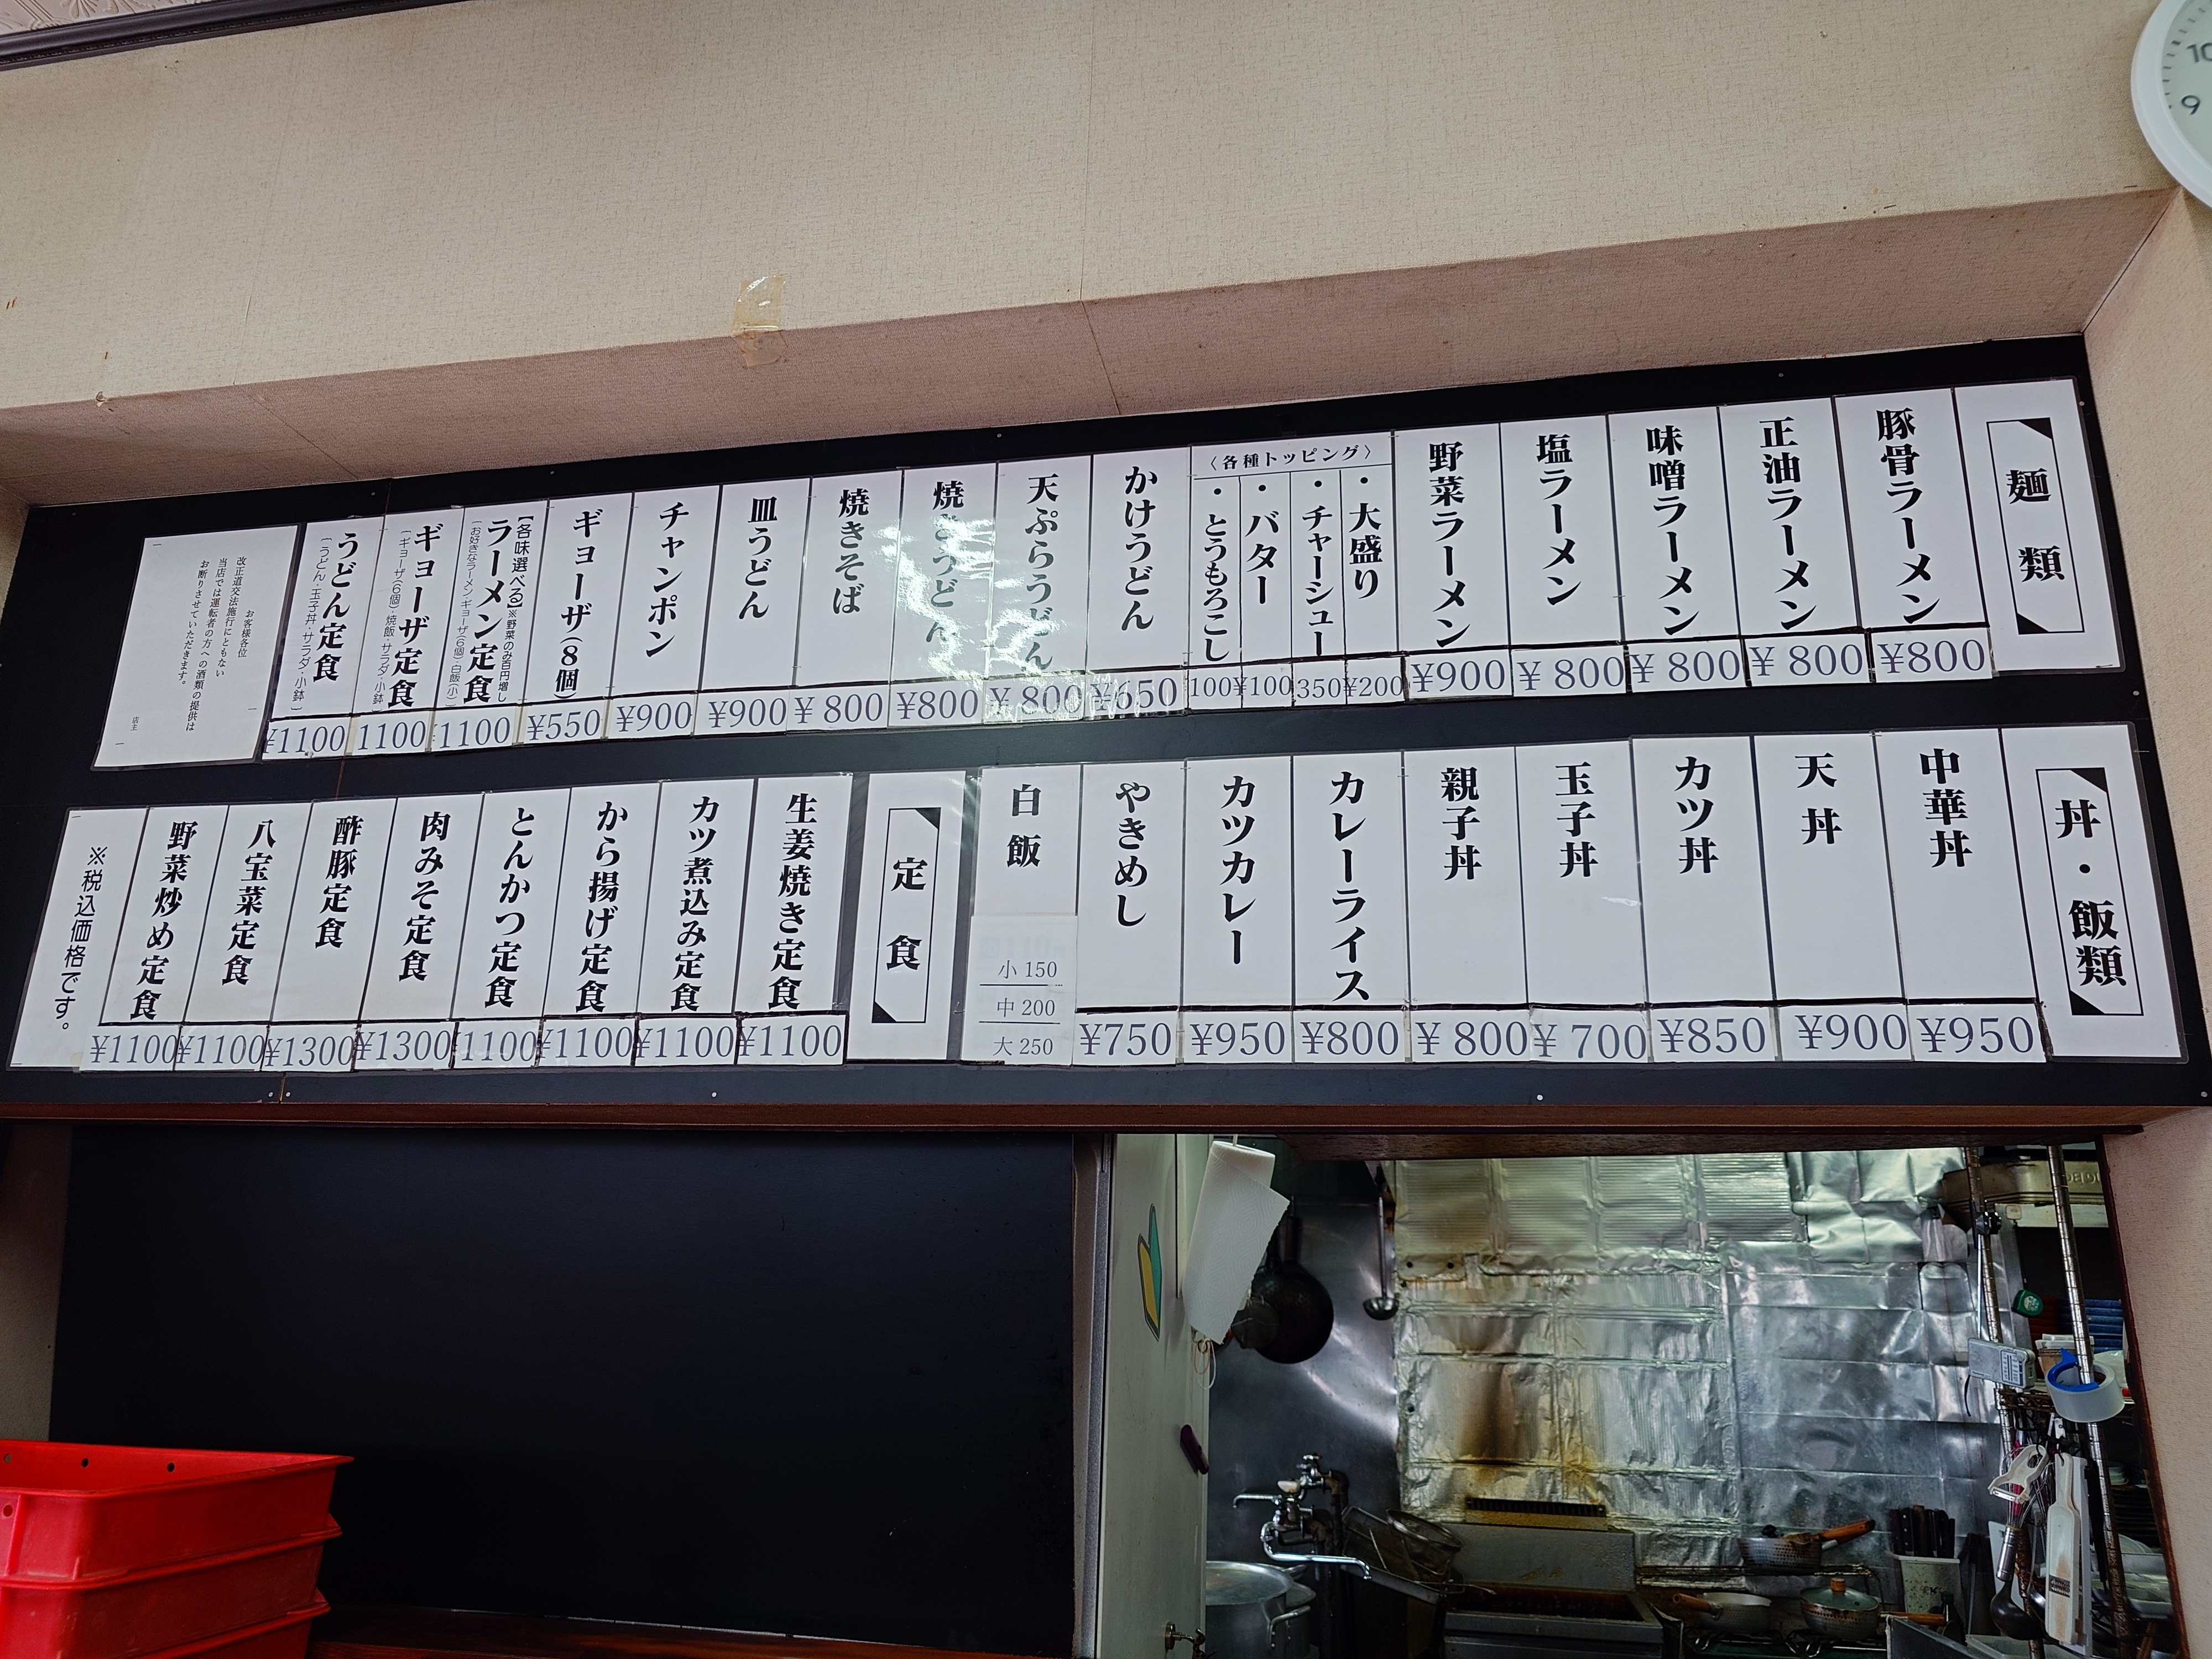 麺類
豚骨ラーメン
¥800
正油ラーメン
¥800
味噌ラーメン
¥800
塩ラーメン
¥800
野菜ラーメン
¥900
〈各種トッピング〉
・大盛り
¥200
・チャーシュー
350
・バター
¥100
・とうもろこし
100
かけうどん
¥650
天ぷらうどん
¥800
焼きうどん
¥800
焼きそば
¥800
皿うどん
¥900
チャンポン
¥900
ギョーザ(8個)
¥550
【各味選べる】※野菜のみ百円増し
ラーメン定食
(お好きなラーメン・ギョーザ(6個)・白飯(小))
1100
ギョーザ定食
(ギョーザ(6個)・焼飯・サラダ・小鉢)
1100
うどん定食
(うどん・玉子丼・サラダ・小鉢)
¥1100
お客様各位
改正道交法施行にともない
当店では運転者の方への酒類の提供は
お断りさせていただきます。
店主
丼・飯類
中華丼
¥950
天丼
¥900
カツ丼
¥850
玉子丼
¥700
親子丼
¥800
カレーライス
¥800
カツカレー
¥950
やきめし
¥750
白飯
小 150
中 200
大 250
定食
生姜焼き定食
¥1100
カツ煮込み定食
¥1100
から揚げ定食
¥1100
とんかつ定食
1100
肉みそ定食
¥1300
酢豚定食
¥1300
八宝菜定食
¥1100
野菜炒め定食
¥1100
※税込価格です。
10
9